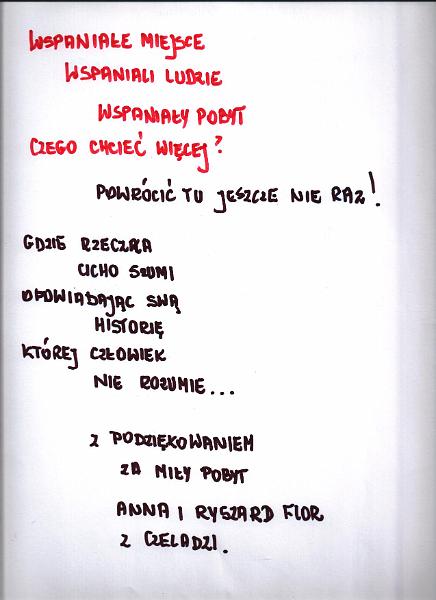 WSPANIAŁE MIEJSCE
WSPANIALI LUDZIE
WSPANIAŁY POBYT
CZEGO CHCIEĆ WIĘCEJ?
POWRÓCIĆ TU JESZCZE NIE RAZ!
GDZIE RZECZKA
CICHO SZUMI
OPOWIADAJĄC SWĄ
HISTORIĘ
KTÓREJ CZŁOWIEK
NIE ROZUMIE...
Z PODZIĘKOWANIEM
ZA MIŁY POBYT
ANNA I RYSZARD FLOR
Z CZELADZI.